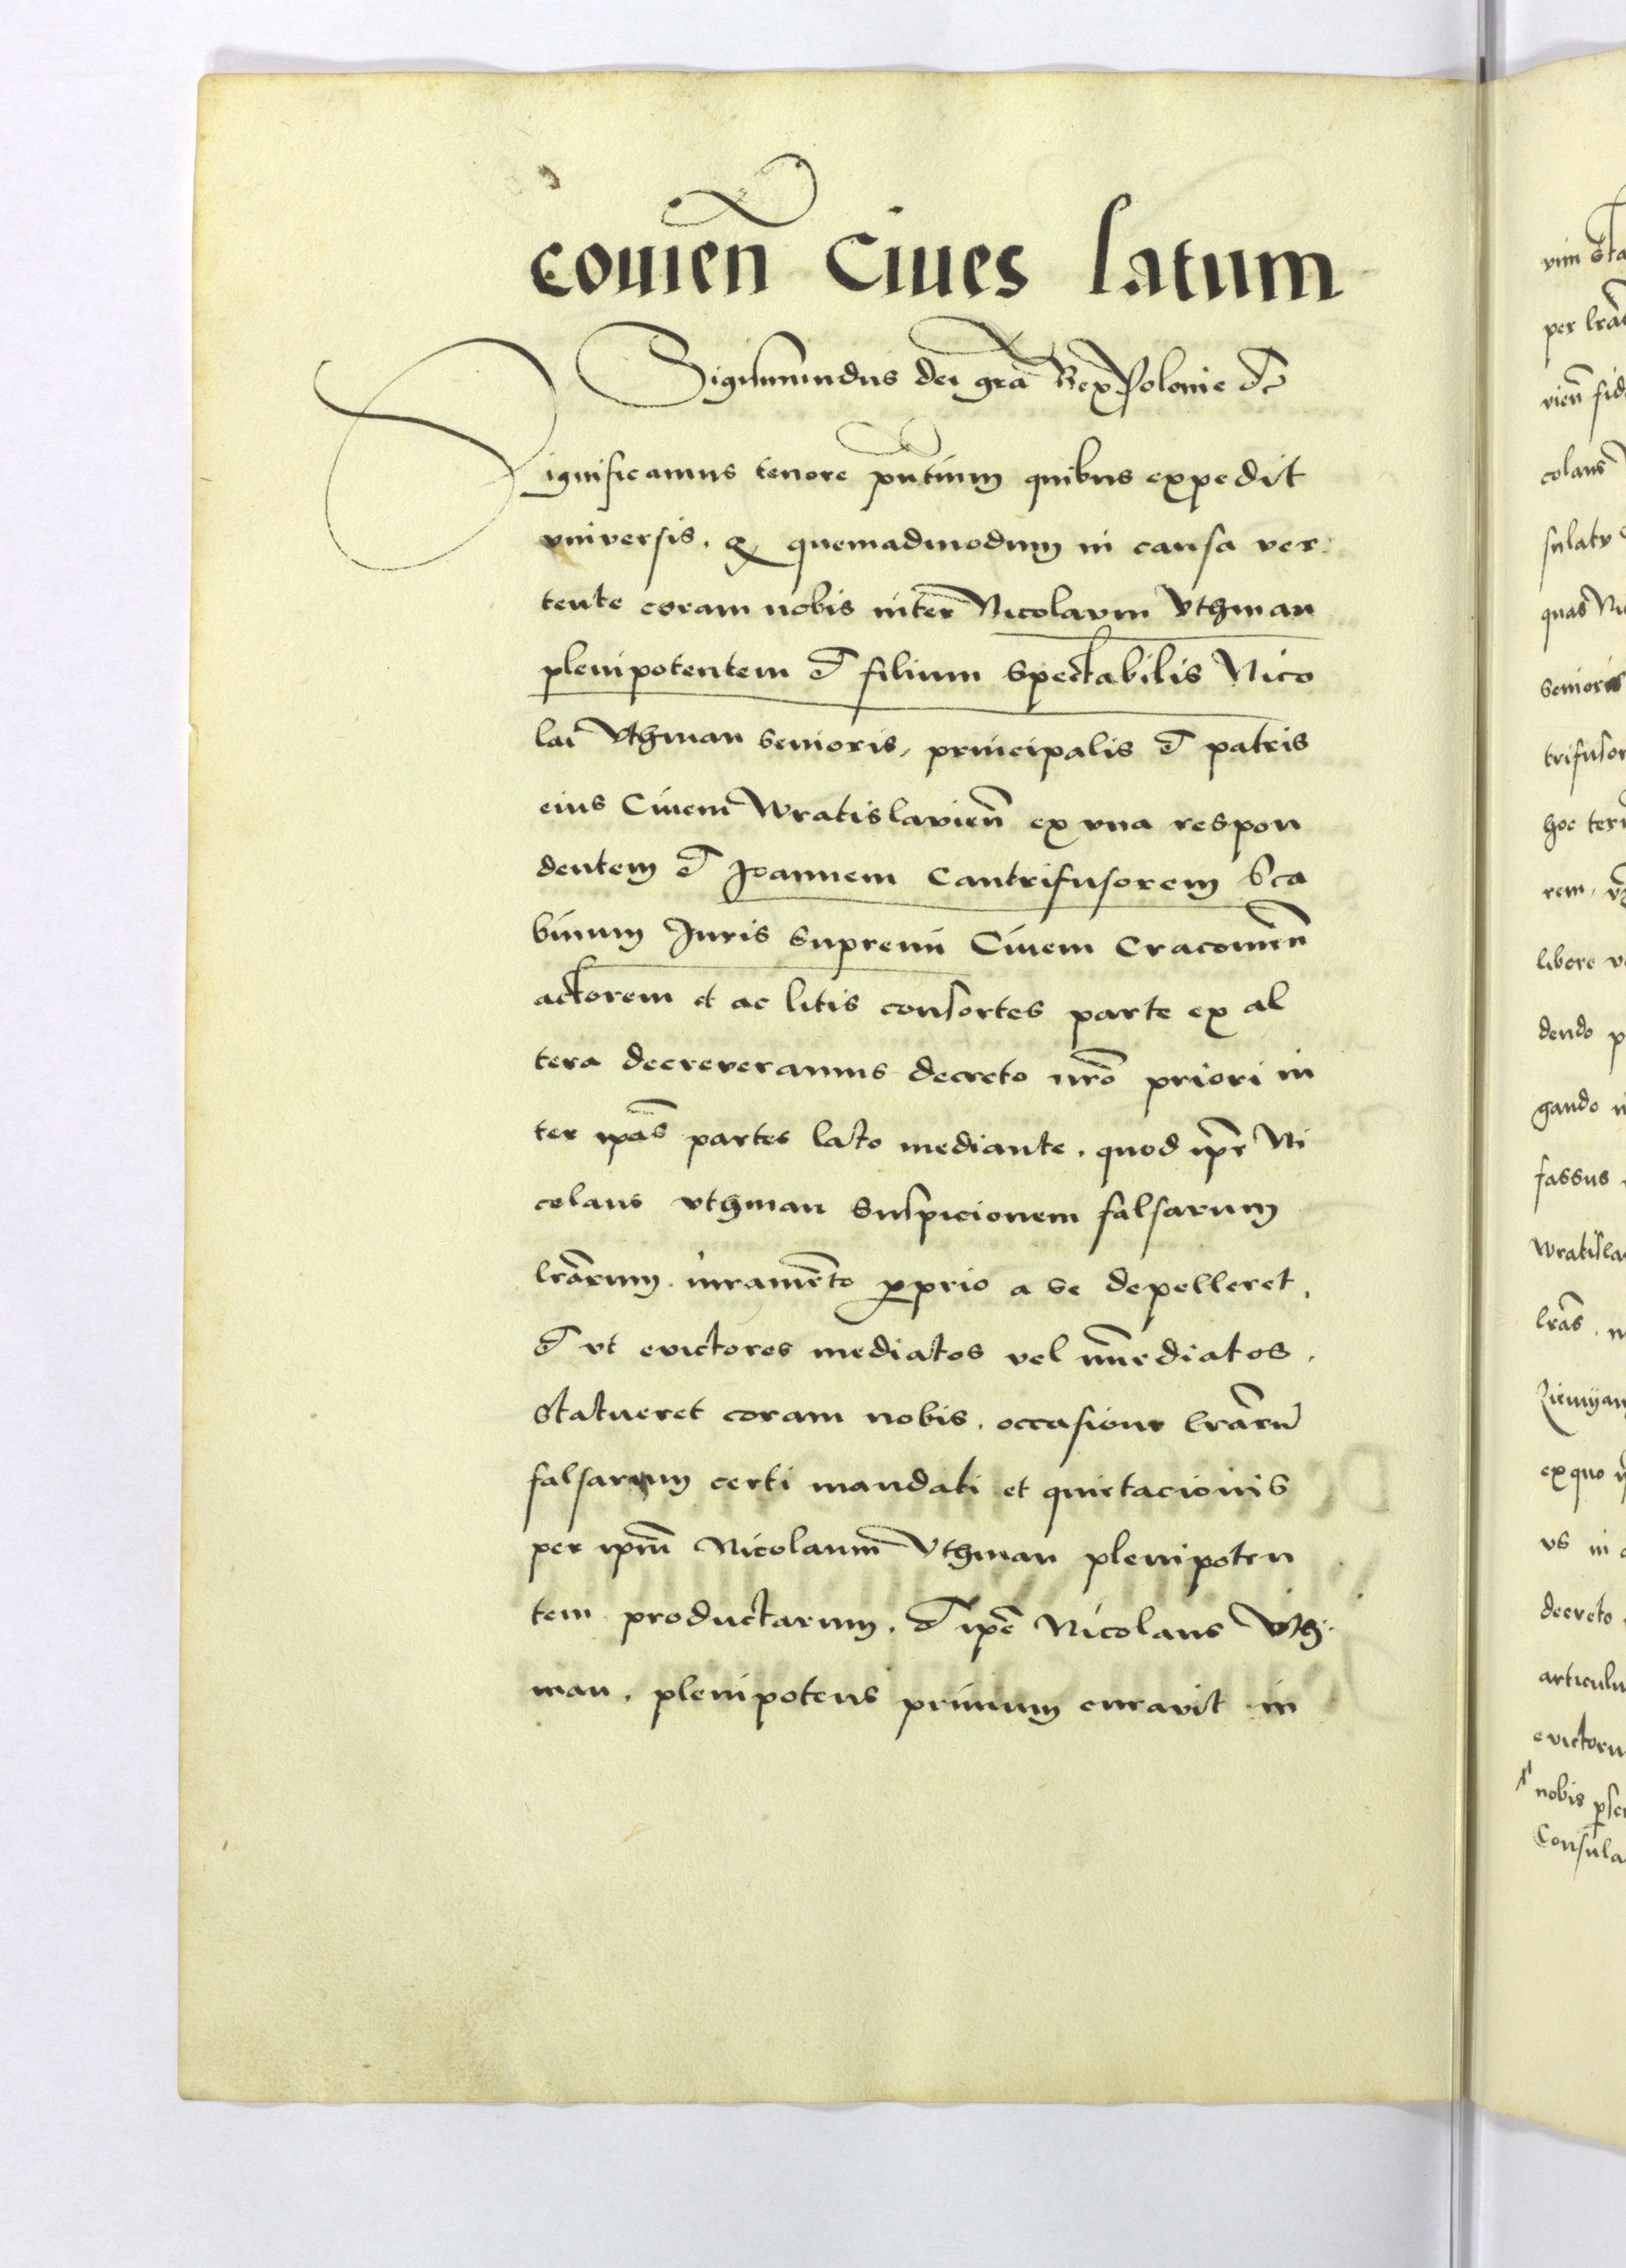 couien̄ Ciues latum
Sigismundus dei gr̄a Rex Polonie etc̄
Significamus tenore pn̄tium quibus expedit
vniversis. Q quemadmodum in causa ver
tente coram nobis inter Nicolaum Vthman
plenipotentem et filium Spectabilis Nico
lai Vthman Senioris, principalis et patris
eius Ciuem Wratislavien̄ ex vna respon
dentem et Joannem Cantrifusorem Sca
binum Juris Supremi Ciuem Cracouien̄
actorem et ac litis consortes parte ex al
tera decreveramus decreto nr̄o priori in
ter ip̄as partes lato mediante. quod ip̄e Ni
colaus vthman Suspicionem falsarum
lr̄arum iuramento proprio a se depelleret.
et vt evictores mediatos vel im̄ediatos.
Statueret coram nobis. occasione lr̄arū
falsarum certi mandati et quietacionis
per ip̄m Nicolaum Vthman plenipoten
tem productarum. et ip̄e Nicolaus Vth
man, plenipotens primum curavit in
vim
per lr̄a
vien̄ fid
colaus
sulatu
quas Ni
Senioris
trifusor
hoc ter
rem,
libere v
dendo p
gando
fassus
Wratisla
lr̄as
ex quo
vs in
decreto
articulu
evictoru
nobis
Consula